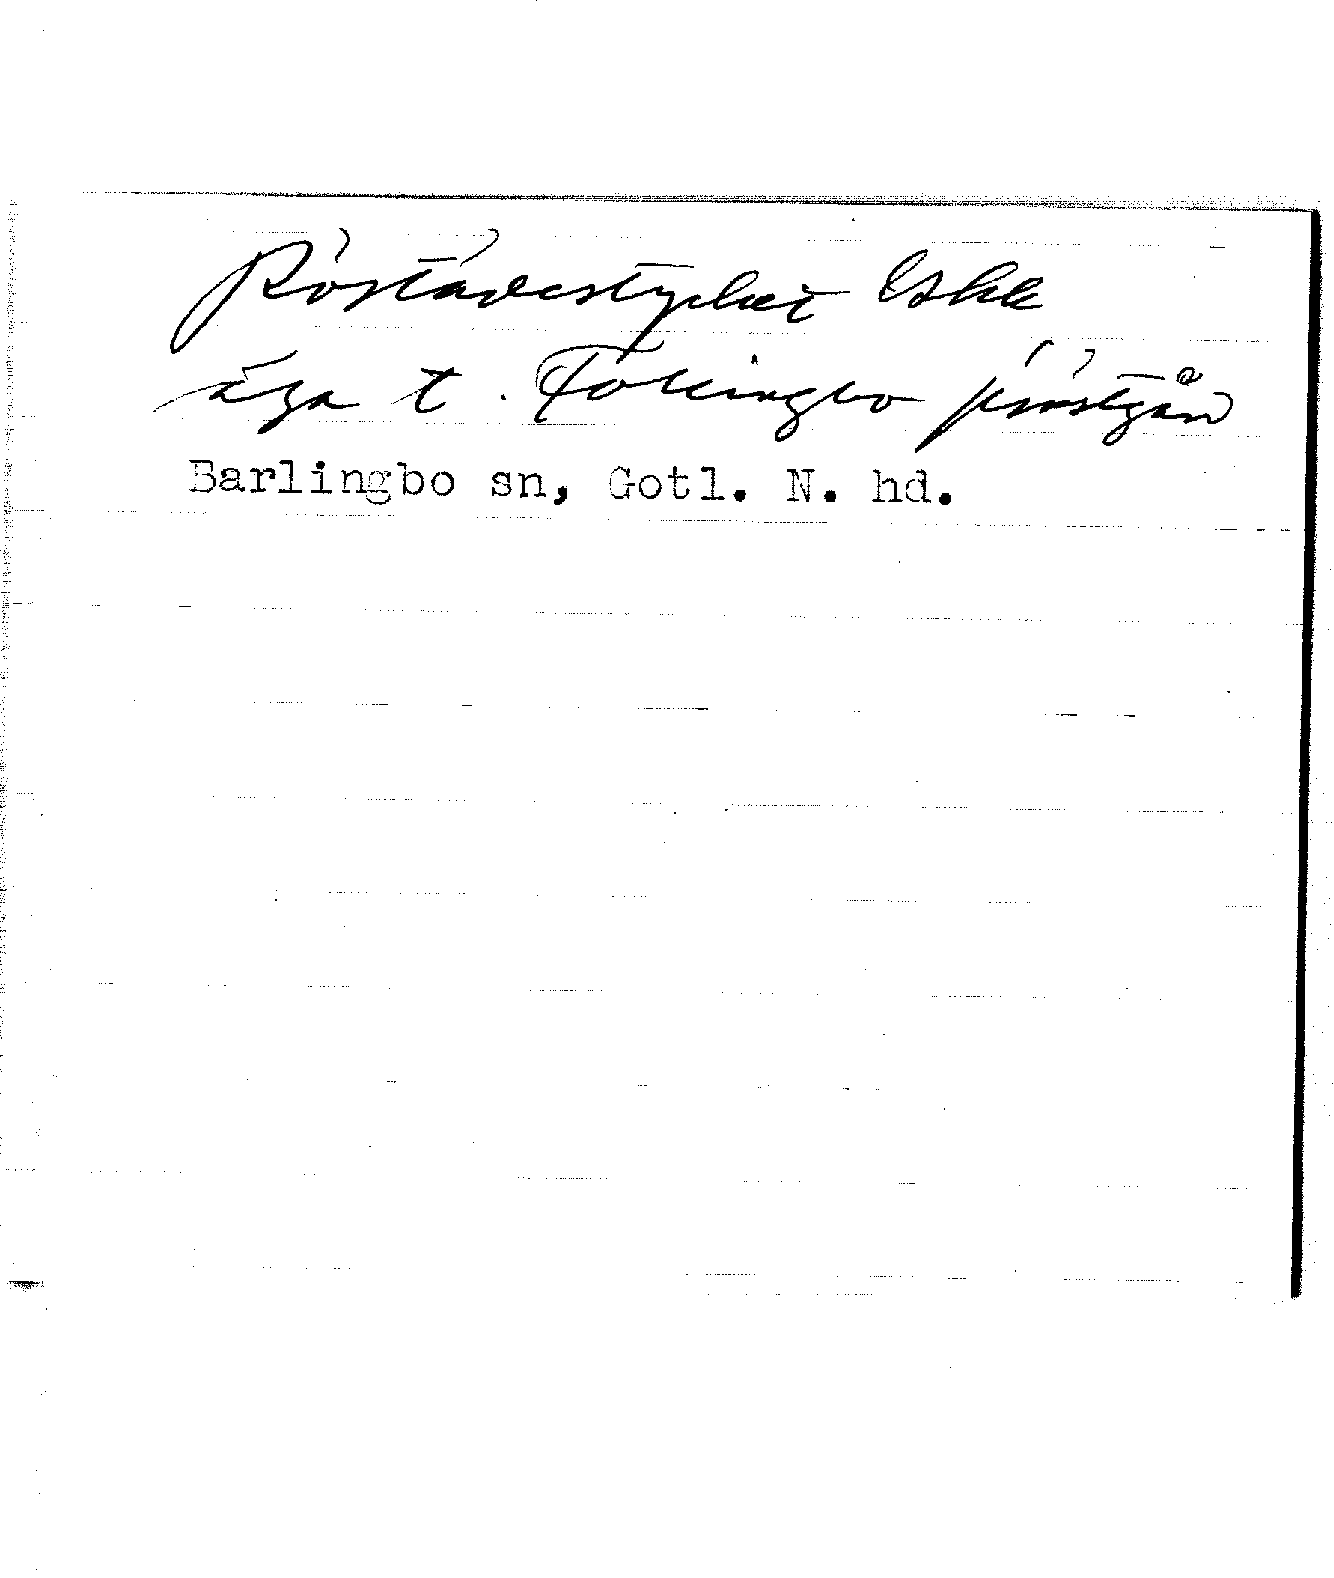 Röstädestycket Eskk
äga t. Follingbo prästgård
Barlingbo sn, Gotl. N. hd.